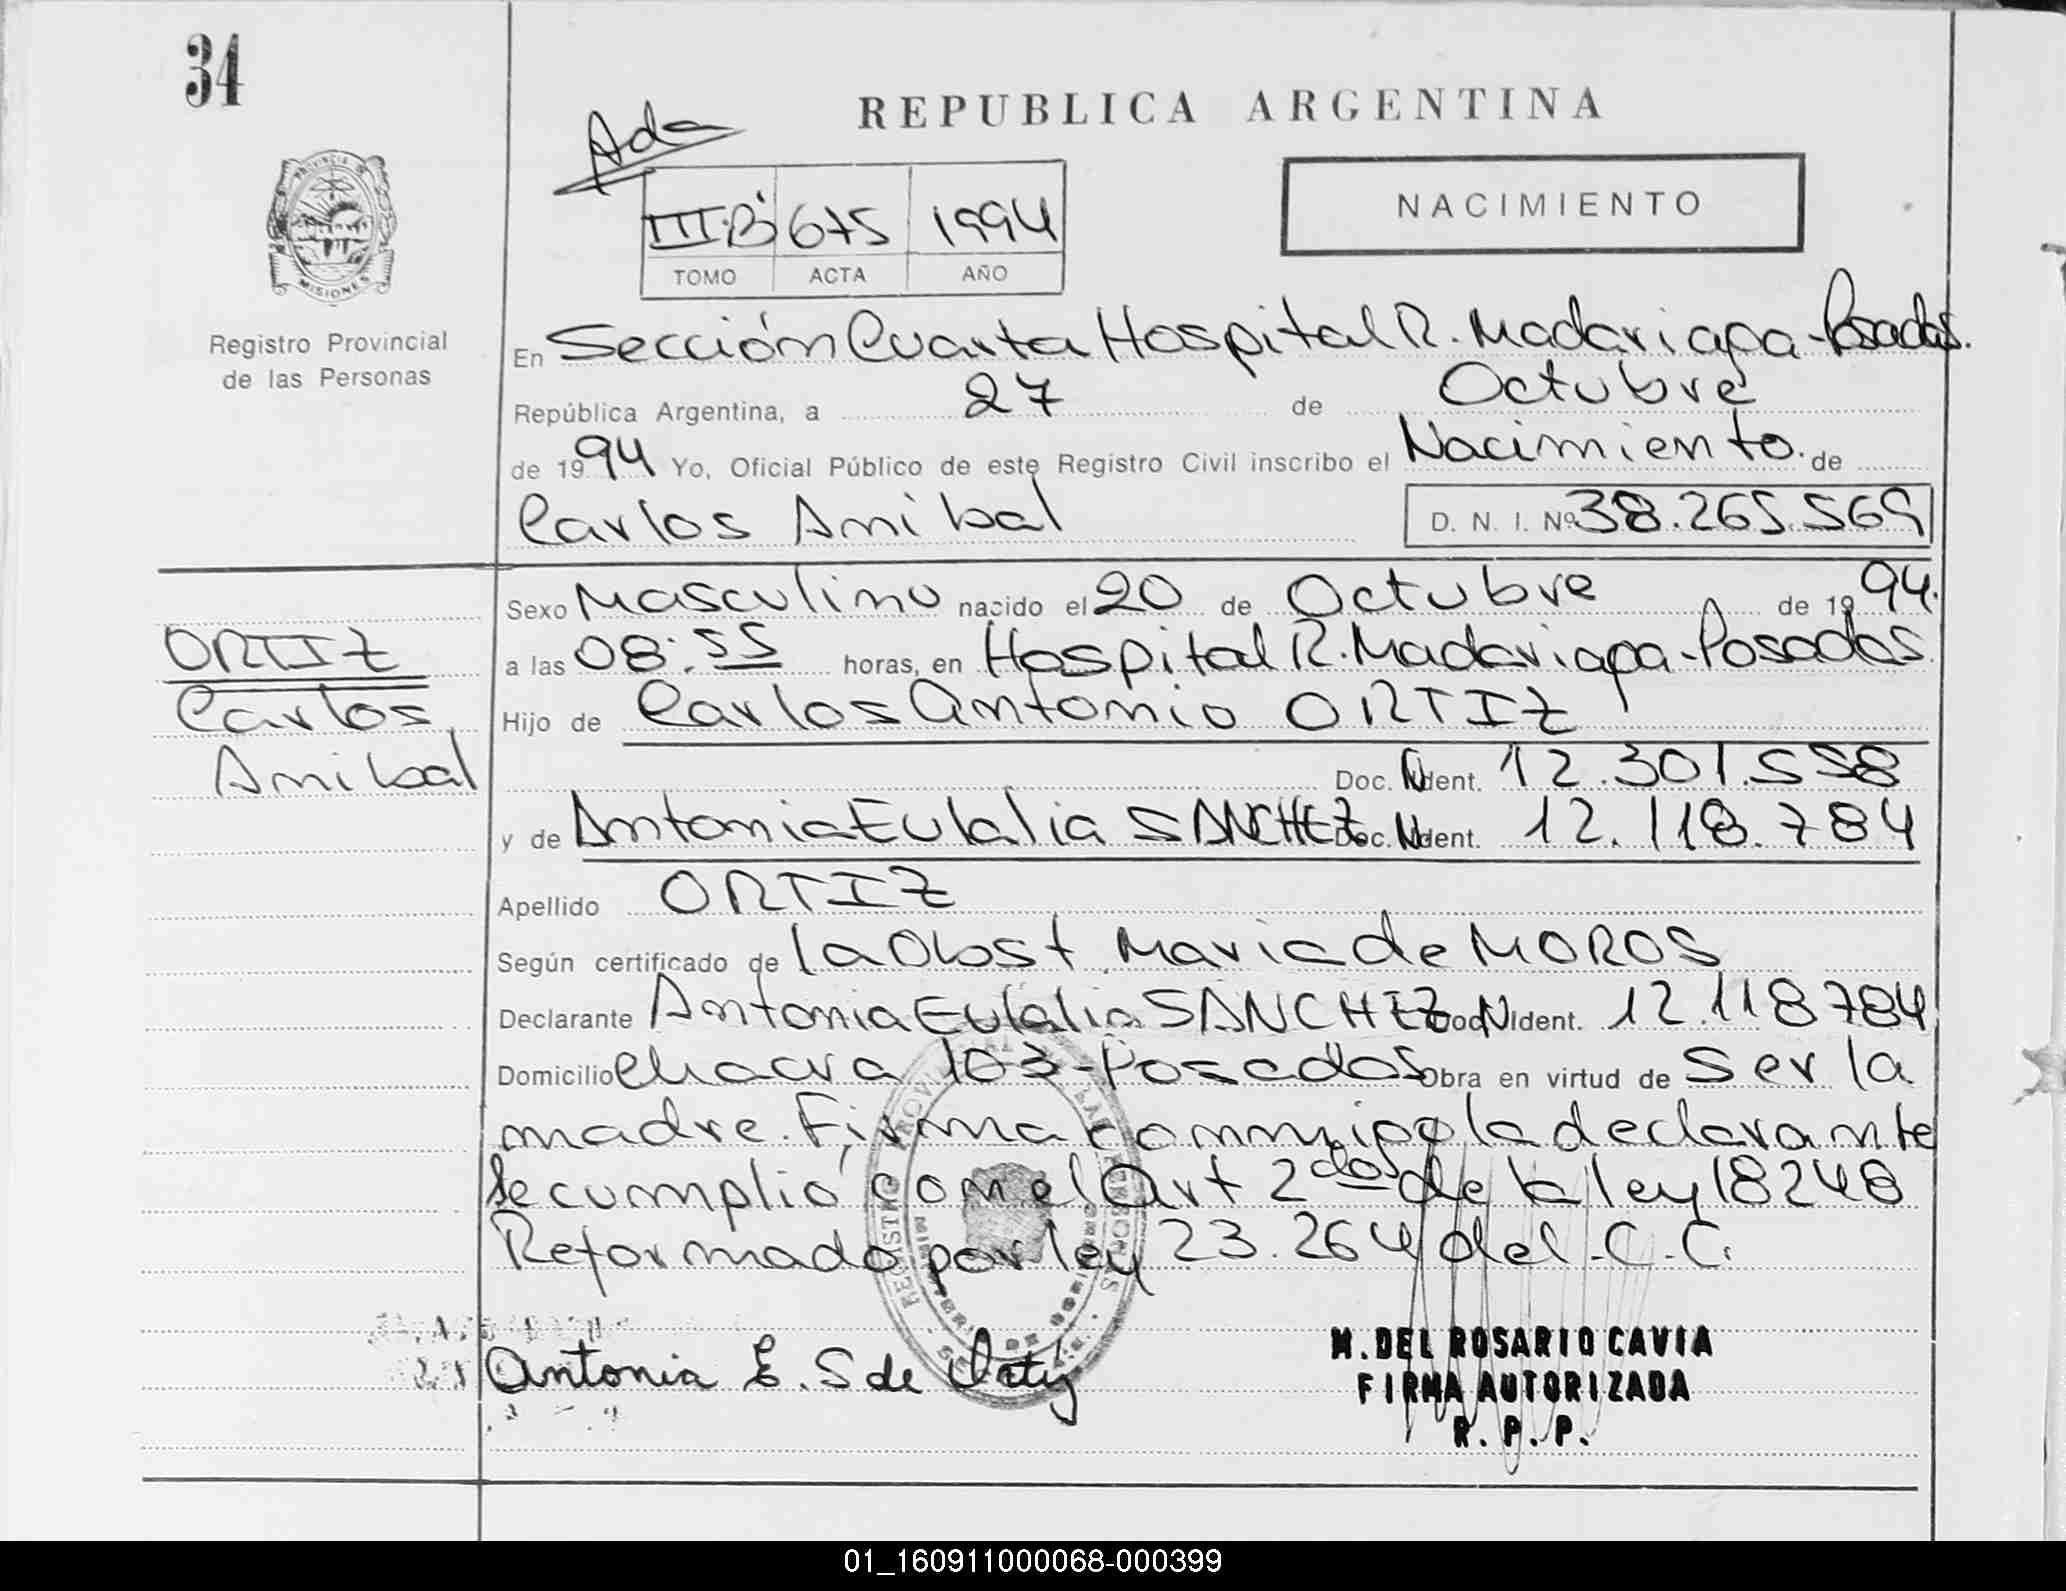 34
REPUBLICA ARGENTINA
Ada
III.B' 675 1994
TOMO ACTA AÑO
NACIMIENTO
PROVINCIA DE
MISIONES
Registro Provincial
de las Personas
En Sección Cuarta Hospital R. Madariaga - Posadas.
República Argentina, a 27 de Octubre
de 1994 Yo, Oficial Público de este Registro Civil inscribo el Nacimiento. de
Carlos Anibal D. N. I. Nº 38.265.569
Sexo Masculino nacido el 20 de Octubre de 1994.
ORTIZ
Carlos
Anibal
a las 08:55 horas, en Hospital R. Madariaga - Posadas
Hijo de Carlos Antonio ORTIZ
Doc. Ident. 12.301.558
y de Antonia Eulalia SANCHEZ Doc. Ident. 12.118.784
Apellido ORTIZ
Según certificado de la Obst Maria de MOROS
Declarante Antonia Eulalia SANCHEZ Doc. Ident. 12.118784
Domicilio Chacra 103 - Posadas Obra en virtud de Ser la
madre. Firma conmigo la declarante
Se cumplió con el Art 2do de la ley 18248
Reformado por ley 23.264 del C.C.
Antonia E. S de Ortiz
M. DEL ROSARIO CAVIA
FIRMA AUTORIZADA
R. P. P.
01_160911000068-000399